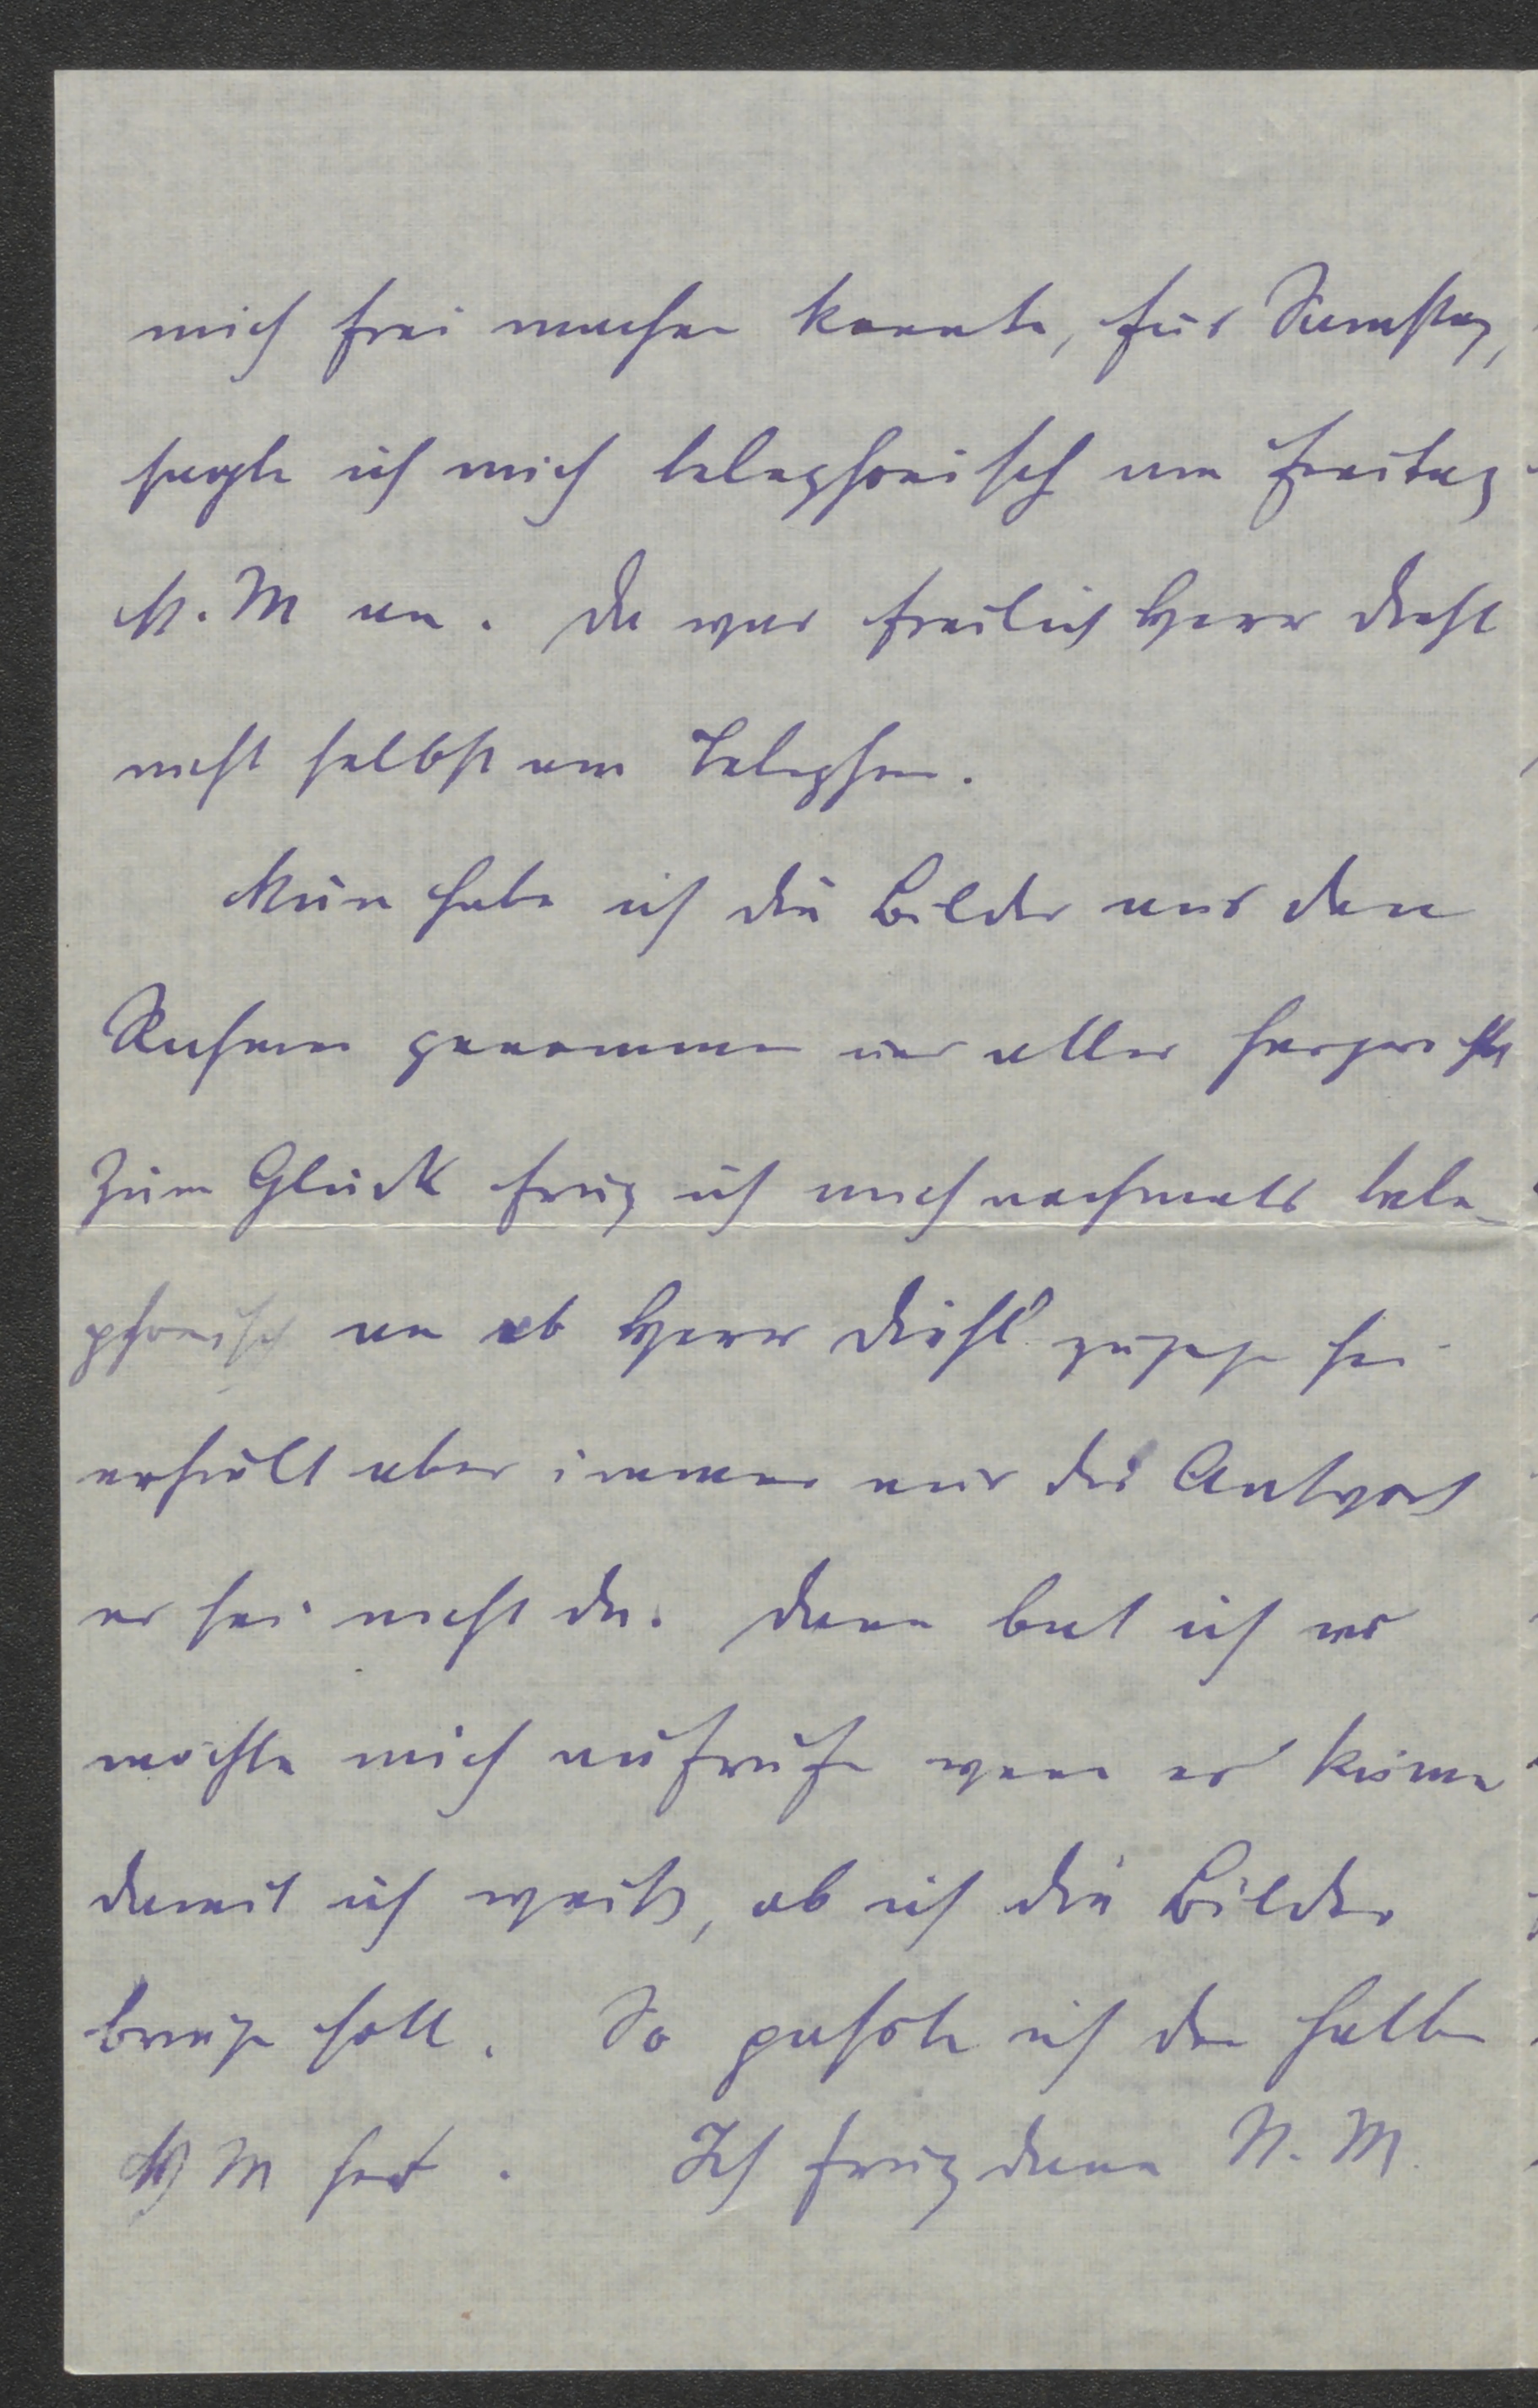 mich frei machen konnte, für Samstag,
sagte ich mich telephonisch am Freitag
N. M an. Da war freilich Herr Diehl
nicht selbst am Telephon.
Nun habe ich die Bilder aus den
Rahmen genommen und alles hergerichtet
Zum Glück frug ich auch nochmals tele-
phonisch an ob Herr Diehl zuhause sei
erhielt aber immer nur die Antwort
er sei nicht da. Dann bat ich er
möchte mich aufrufen wenn er käme
damit ich weiß, ob ich die Bilder
bringen soll. So paßte ich den halben
N M fort. Ich frug dann N. M.